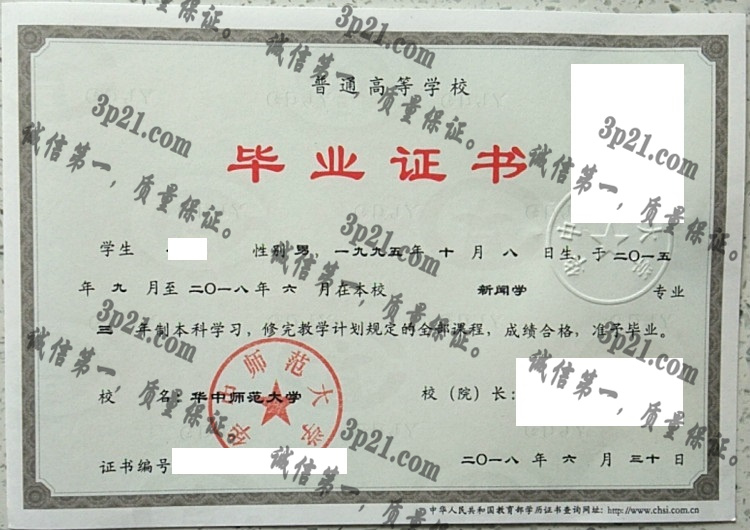 普通高等学校
毕业证书
学生 性别 男 一九九五年 十 月 八 日生，于二〇一五
年 九 月至 二〇一八年 六 月在本校 新闻学 专业
三 年制本科学习，修完教学计划规定的全部课程，成绩合格，准予毕业。
校 名：华中师范大学 校（院）长：
证书编号 二〇一八 年 六 月 三十 日
中华人民共和国教育部学历证书查询网址：http://www.chsi.com.cn
师范大学
3p21.com
诚信第一，质量保证。
3p21.com
诚信第一，质量保证。
3p21.com
诚信第一，质量保证。
3p21.com
诚信第一，质量保证。
3p21.com
诚信第一，质量保证。
3p21.com
诚信第一，质量保证。
3p21.com
诚信第一，质量保证。
3p21.com
诚信第一，质量保证。